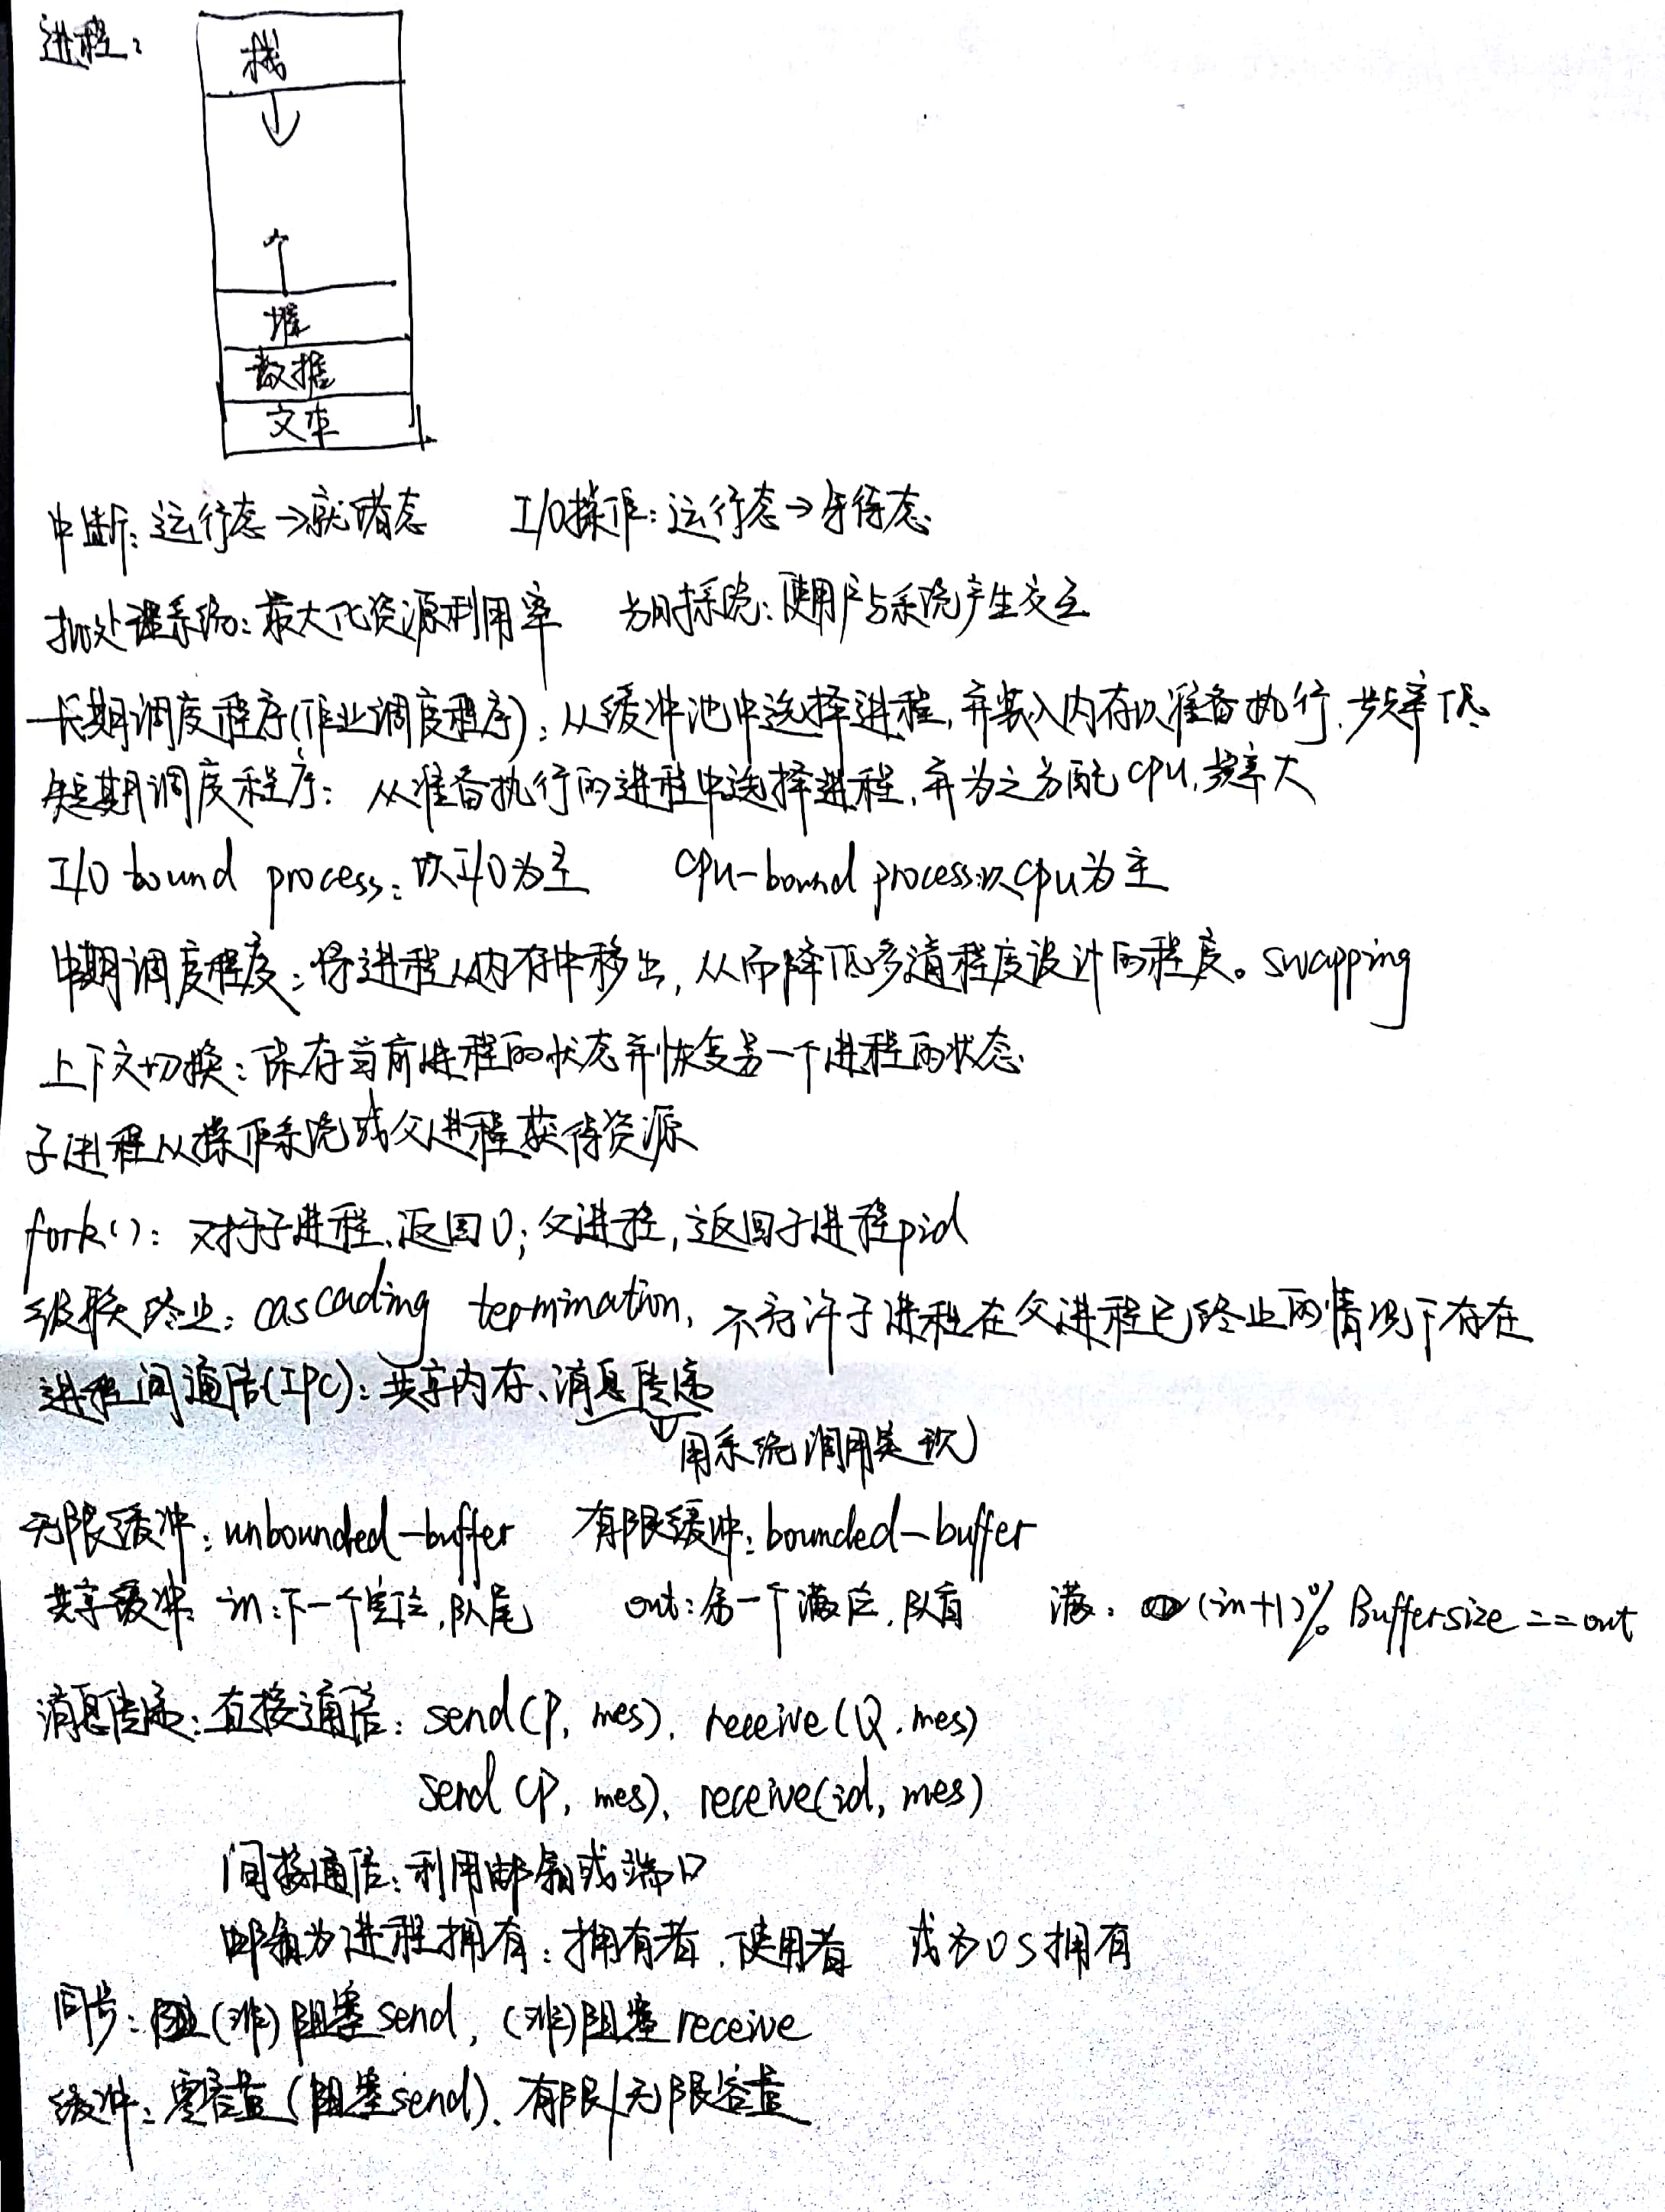 进程:
栈
堆
数据
文本
中断: 运行态→就绪态 I/O操作: 运行态→等待态
批处理系统: 最大化资源利用率 分时系统: 使用户与系统产生交互
长期调度程序(作业调度程序): 从缓冲池中选择进程, 并装入内存以准备执行, 频率低
短期调度程序: 从准备执行的进程中选择进程, 并为之分配CPU, 频率大
I/O bound process: 以I/O为主 CPU-bound process: 以CPU为主
中期调度程序: 将进程从内存中移出, 从而降低多道程度设计的程度。swapping
上下文切换: 保存当前进程的状态并恢复另一个进程的状态
子进程从操作系统或父进程获得资源
fork(): 对于子进程, 返回0; 父进程, 返回子进程pid
级联终止: cascading termination, 不允许子进程在父进程已终止的情况下存在
进程间通信(IPC): 共享内存、消息传递
用系统调用实现
无限缓冲: unbounded-buffer 有限缓冲: bounded-buffer
共享缓冲: in: 下一个空位, 队尾 out: 第一个满位, 队首 满: (in+1)% Buffersize == out
消息传递: 直接通信: send(P, mes), receive(Q, mes)
send(P, mes), receive(id, mes)
间接通信: 利用邮箱或端口
邮箱为进程拥有: 拥有者, 使用者 或为OS拥有
同步: (非)阻塞send, (非)阻塞receive
缓冲: 零容量(阻塞send), 有限/无限容量